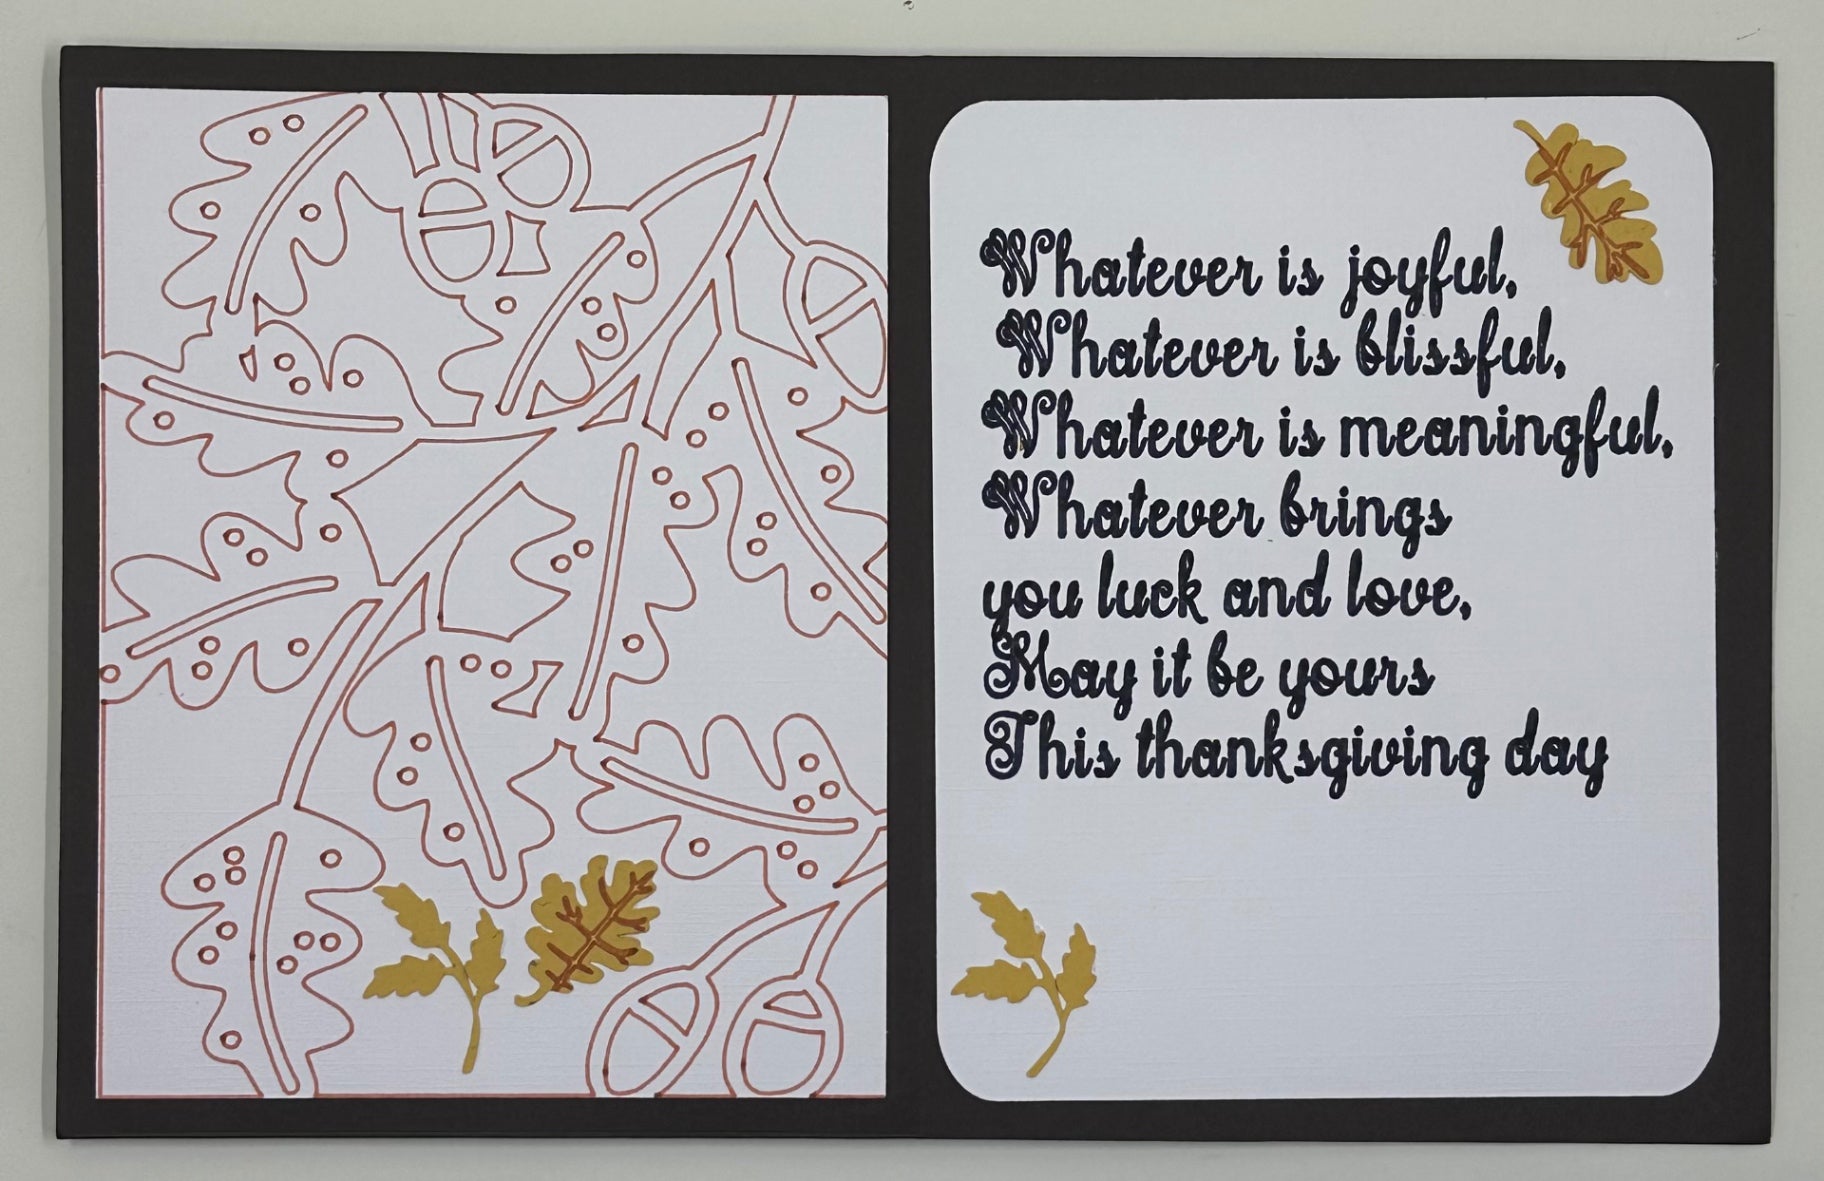 Whatever is joyful,
Whatever is blissful,
Whatever is meaningful,
Whatever brings
you luck and love,
May it be yours
This thanksgiving day